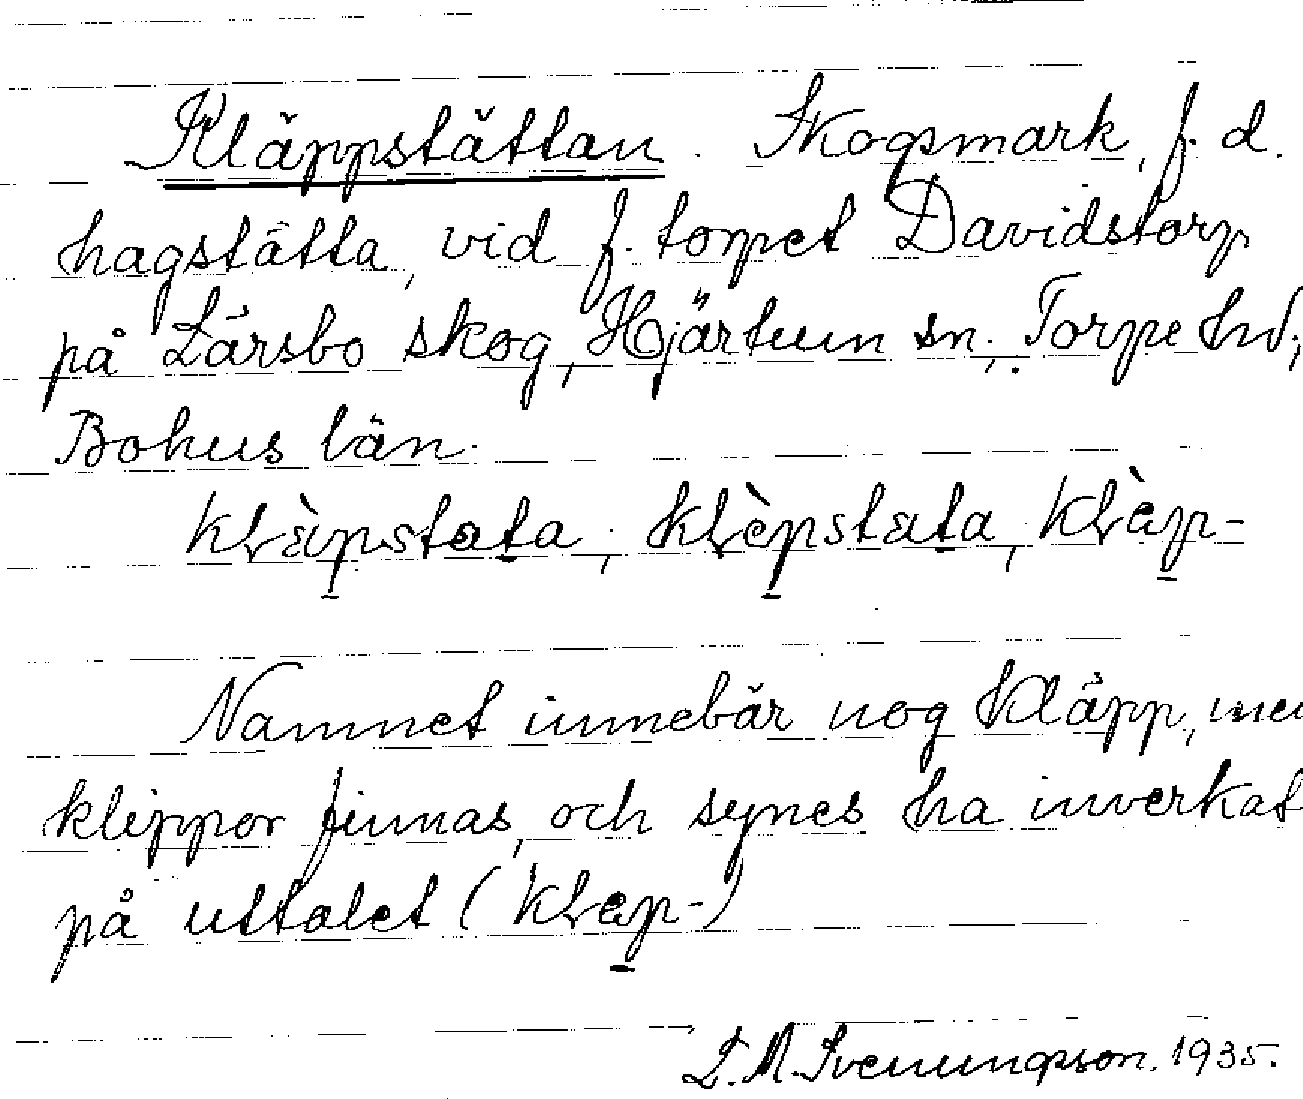 Kläppstättan. Skogsmark, f. d.
hagstätta, vid f. torpet Davidstorp
på Lärsbo skog, Hjärtum sn; Torpe hd;
Bohus län.
klàpstata; klèpstata, klèp-
Namnet innebär nog kläpp, men
klippor finnas, och synes ha inverkat
på uttalet (klep-)
L. M. Svenungsson. 1935.